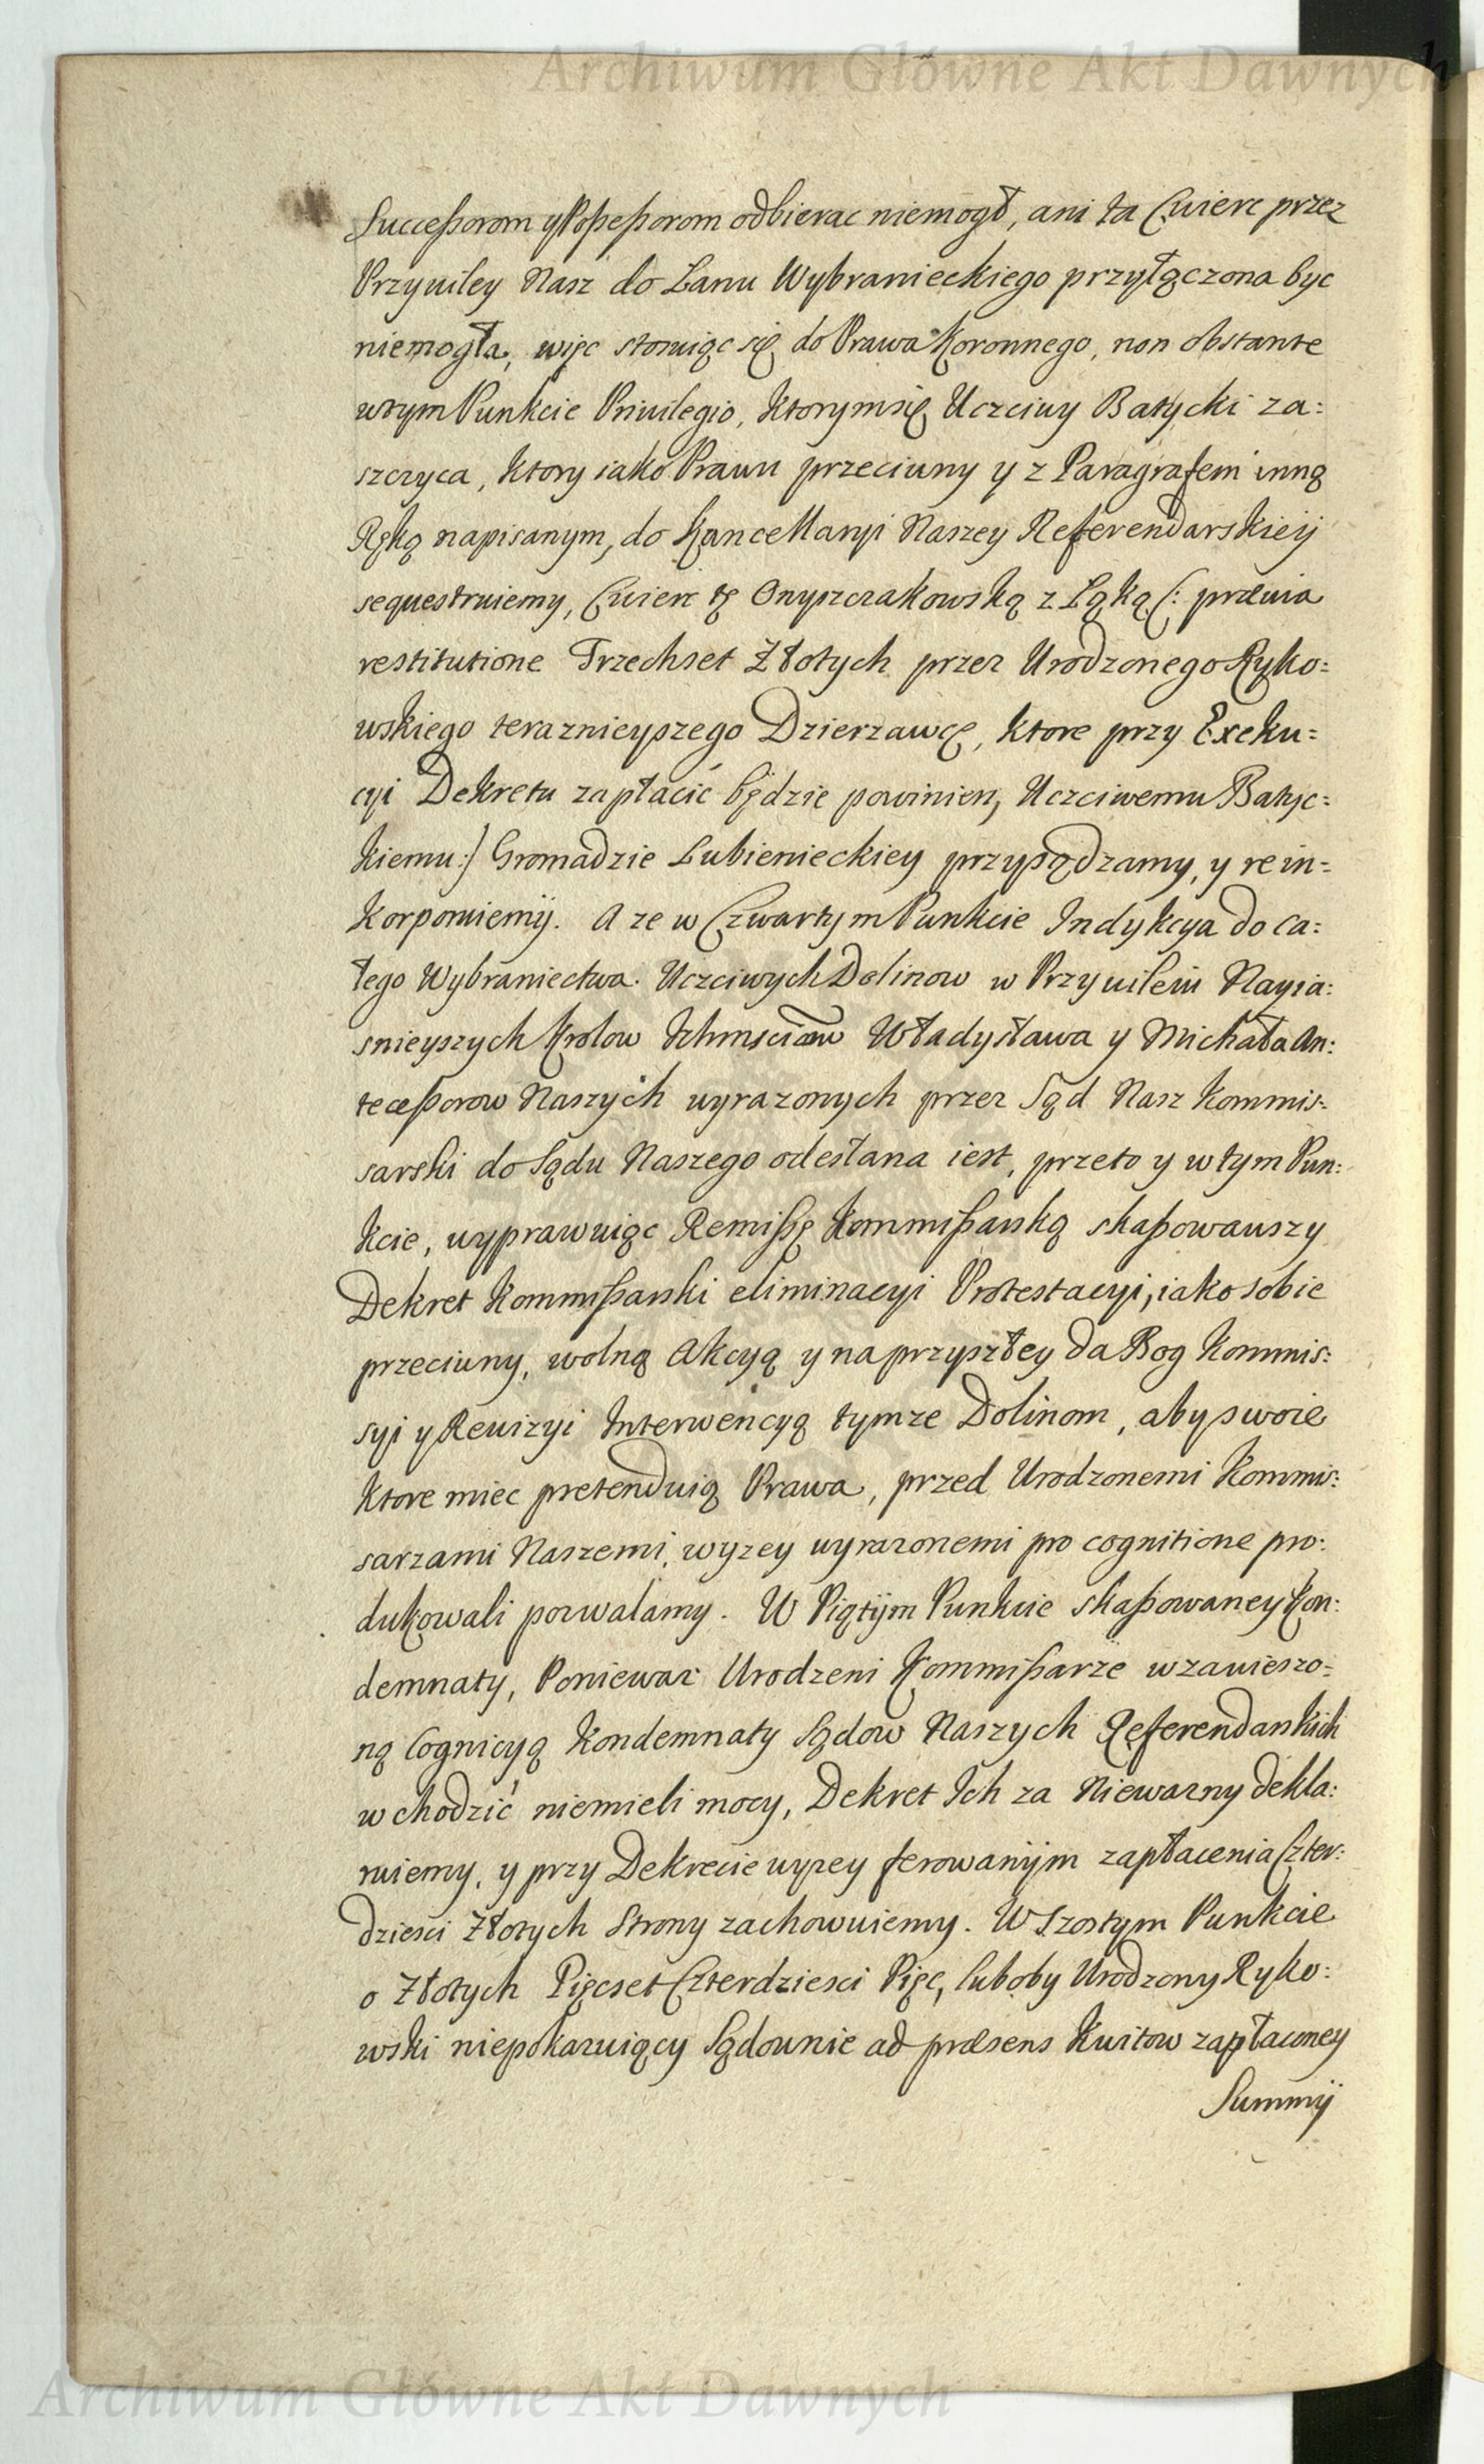 Archiwum Główne Akt Dawnych
Successorom y Possessorom odbierac niemogł, ani ta Cwierc przez
Przywiley Nasz do Łanu Wybranieckiego przyłączona byc
niemogła, więc stosuiąc się do Prawa Koronnego, non obstante
w tym Punkcie Privilegio, ktorym się Uczciwy Batycki za:
szczyca, ktory iako Prawu przeciwny y z Paragrafem inną
Ręką napisanym, do Kancellaryi Naszey Referendarskiey
sequestruiemy, Cwierc tę Onyszczakowską z Łąką (: prævia
restitutione Trzechset Złotych przez Urodzonego Ryko:
wskiego teraznieyszego Dzierzawcę, ktore przy Exeku:
cyi Dekretu zapłacić będzie powinien, Uczciwemu Batyc:
kiemu :) Gromadzie Lubienieckiey przysądzamy, y rein:
korporuiemy. A ze w Czwartym Punkcie Indykcya do ca:
łego Wybraniectwa Uczciwych Dolinow w Przywileiu Nayia:
snieyszych Krolow Ichmsciow Władysława y Michała An:
tecessorow Naszych wyrazonych przez Sąd Nasz Kommis:
sarski do Sądu Naszego odesłana iest, przeto y w tym Pun:
kcie, wyprawuiąc Remissę Kommissarską skassowawszy
Dekret Kommissarski eliminacyi Protestacyi, iako sobie
przeciwny, wolną Akcyą y na przyszłey da Bog Kommis:
syi y Rewizyi Interwencyą tymze Dolinom, aby swoie
ktore miec pretenduią Prawa, przed Urodzonemi Kommis:
sarzami Naszemi, wyzey wyrazonemi pro cognitione pro:
dukowali pozwalamy. W Piątym Punkcie skassowaney Kon:
demnaty, Poniewaz Urodzeni Kommissarze w zawieszo:
ną Cognicyą Kondemnaty Sądow Naszych Referendarskich
wchodzić niemieli mocy, Dekret Ich za Niewazny dekla:
ruiemy, y przy Dekrecie wyzey ferowanym zapłacenia Czter:
dziesci Złotych Strony zachowuiemy. W Szostym Punkcie
o Złotych Pięcset Czterdziesci Pięc, luboby Urodzony Ryko:
wski niepokazuiący Sądownie ad præsens Kwitow zapłaconey
Summy
Archiwum Główne Akt Dawnych